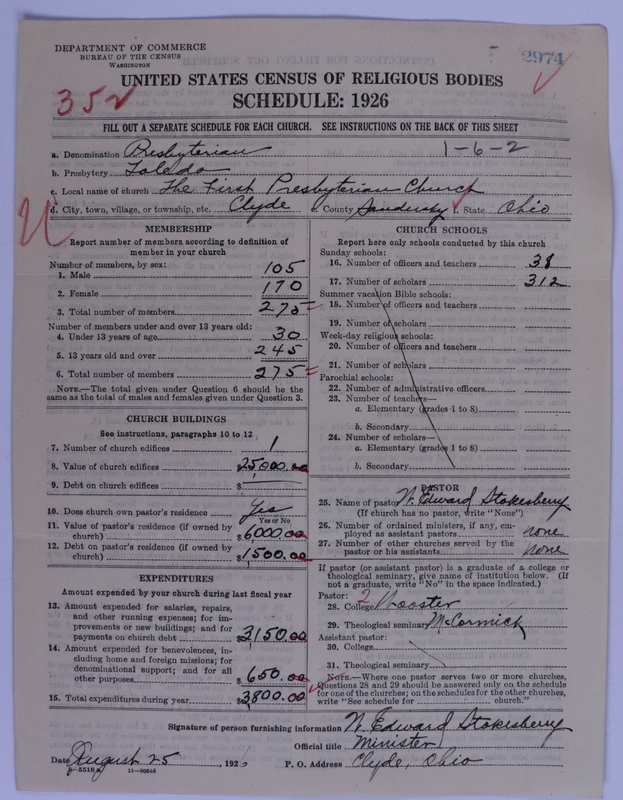 DEPARTMENT OF COMMERCE
BUREAU OF THE CENSUS
WASHINGTON
2974
UNITED STATES CENSUS OF RELIGIOUS BODIES
SCHEDULE: 1926
352
FILL OUT A SEPARATE SCHEDULE FOR EACH CHURCH. SEE INSTRUCTIONS ON THE BACK OF THIS SHEET
1-6-2
a. Denomination Presbyterian
b. Presbytery Toledo
c. Local name of church The First Presbyterian Church
d. City, town, village, or township, etc. Clyde e. County Sandusky f. State Ohio
MEMBERSHIP
Report number of members according to definition of
member in your church
Number of members, by sex:
1. Male 105
2. Female 170
3. Total number of members 275
Number of members under and over 13 years old:
4. Under 13 years of age 30
5. 13 years old and over 245
6. Total number of members 275
NOTE.—The total given under Question 6 should be
same as the total of males and females given under Question 3.
CHURCH BUILDINGS
See instructions, paragraphs 10 to 12
7. Number of church edifices 1
8. Value of church edifices $25,000.00
9. Debt on church edifices $
10. Does church own pastor's residence Yes
Yes or No
11. Value of pastor's residence (if owned by
church) $6000.00
12. Debt on pastor's residence (if owned by
church) $1500.00
EXPENDITURES
Amount expended by your church during last fiscal year
13. Amount expended for salaries, repairs,
and other running expenses; for im-
provements or new buildings; and for
payments on church debt $3150.00
14. Amount expended for benevolences, in-
cluding home and foreign missions; for
denominational support; and for all
other purposes $650.00
15. Total expenditures during year $3800.00
CHURCH SCHOOLS
Report here only schools conducted by this church
Sunday schools:
16. Number of officers and teachers 38
17. Number of scholars 312
Summer vacation Bible schools:
18. Number of officers and teachers
19. Number of scholars
Week-day religious schools:
20. Number of officers and teachers
21. Number of scholars
Parochial schools:
22. Number of administrative officers
23. Number of teachers—
a. Elementary (grades 1 to 8)
b. Secondary
24. Number of scholars—
a. Elementary (grades 1 to 8)
b. Secondary
PASTOR
25. Name of pastor N. Edward Stokesberry
(If church has no pastor, write "None")
26. Number of ordained ministers, if any, em-
ployed as assistant pastors none
27. Number of other churches served by the
pastor or his assistants none
If pastor (or assistant pastor) is a graduate of a college or
theological seminary, give name of institution below. (If
not a graduate, write "No" in the space indicated.)
Pastor: 2
28. College Wooster
29. Theological seminary McCormick
Assistant pastor:
30. College
31. Theological seminary
NOTE.—Where one pastor serves two or more churches,
Questions 28 and 29 should be answered only on the schedule
for one of the churches; on the schedules for the other churches,
write "See schedule for church."
Signature of person furnishing information N. Edward Stokesberry
Official title Minister
Date August 25, 1926 P. O. Address Clyde, Ohio